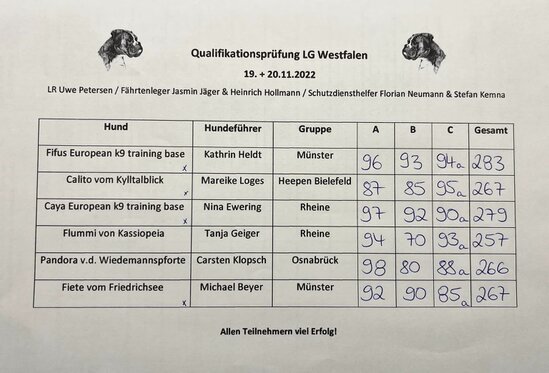 Qualifikationsprüfung LG Westfalen
19. + 20.11.2022
LR Uwe Petersen / Fährtenleger Jasmin Jäger & Heinrich Hollmann / Schutzdiensthelfer Florian Neumann & Stefan Kemna
Hund Hundeführer Gruppe A B C Gesamt
Fifus European k9 training base x Kathrin Heldt Münster 96 93 94a 283
Calito vom Kylltalblick x Mareike Loges Heepen Bielefeld 87 85 95a 267
Caya European k9 training base x Nina Ewering Rheine 97 92 90a 279
Flummi von Kassiopeia Tanja Geiger Rheine 94 70 93a 257
Pandora v.d. Wiedemannspforte Carsten Klopsch Osnabrück 98 80 88a 266
Fiete vom Friedrichsee x Michael Beyer Münster 92 90 85a 267
Allen Teilnehmern viel Erfolg!